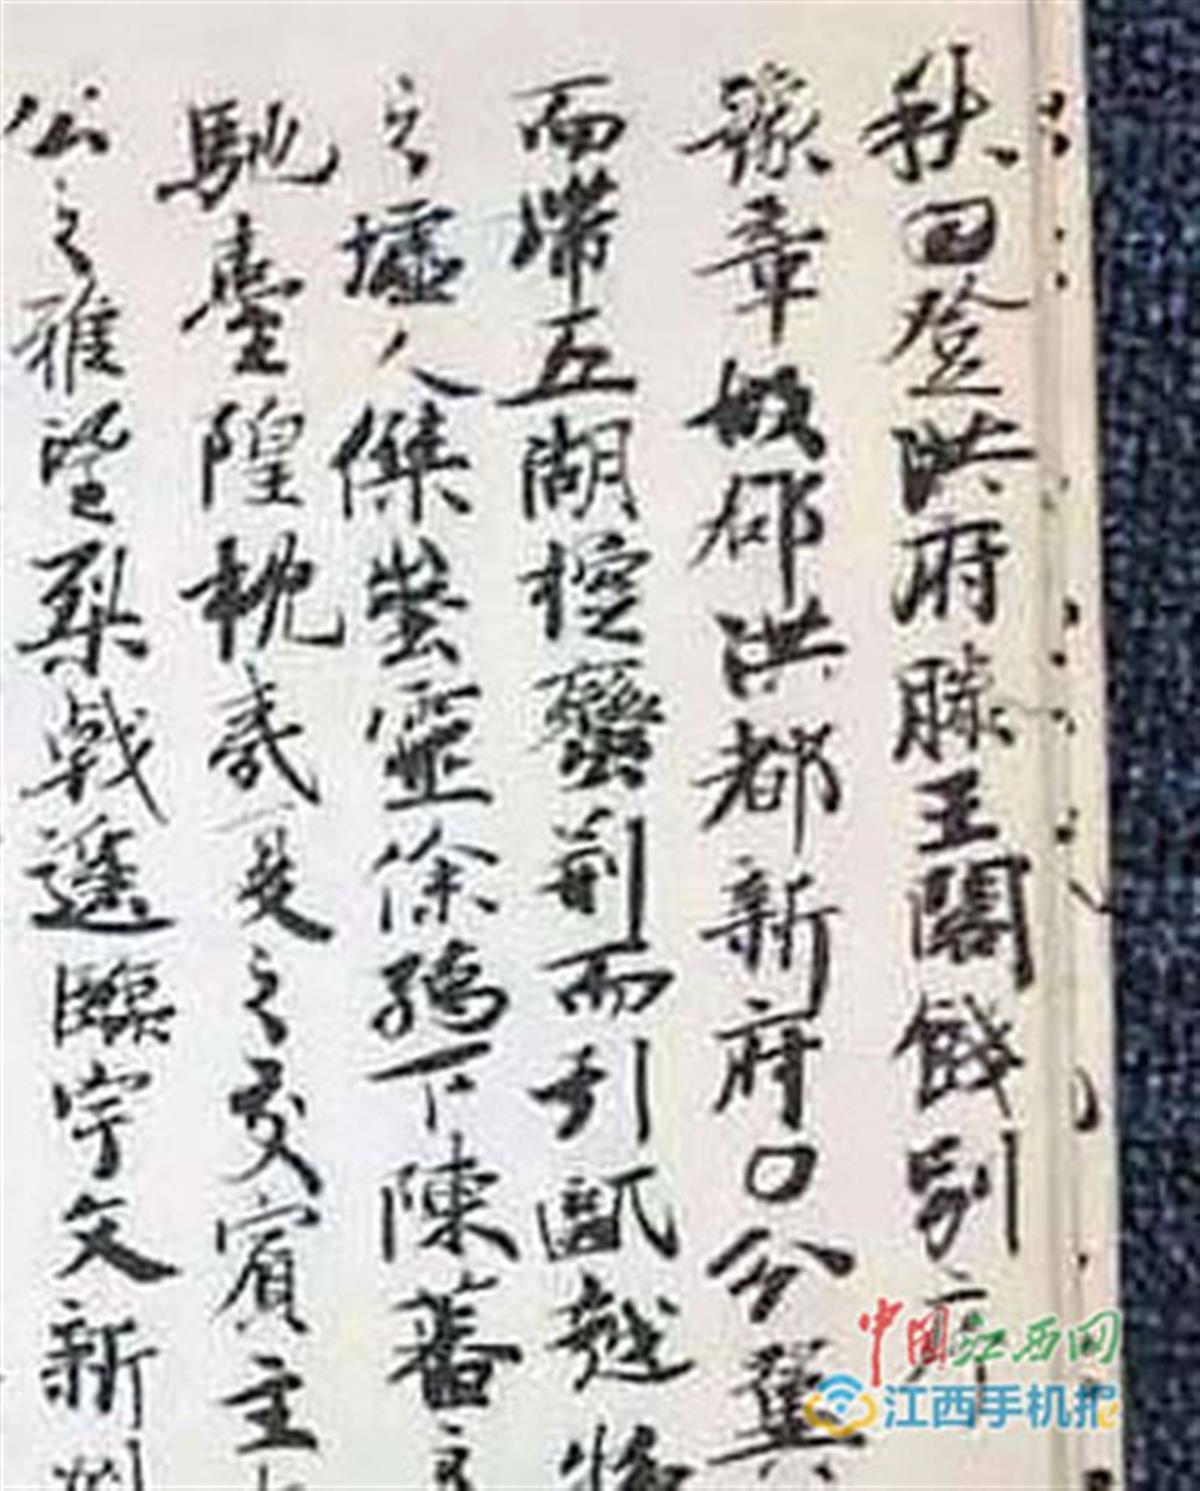 秋𡆠登洪府滕王閣餞別序
豫章故郡洪都新府〇分翼
而帶五湖控蠻荊而引甌越物
之墟人傑埊靈徐孺下陳蕃之
馳臺隍枕夷夏之交賓主
公之雅望棨戟遙臨宇文新州
中国江西网
江西手机报